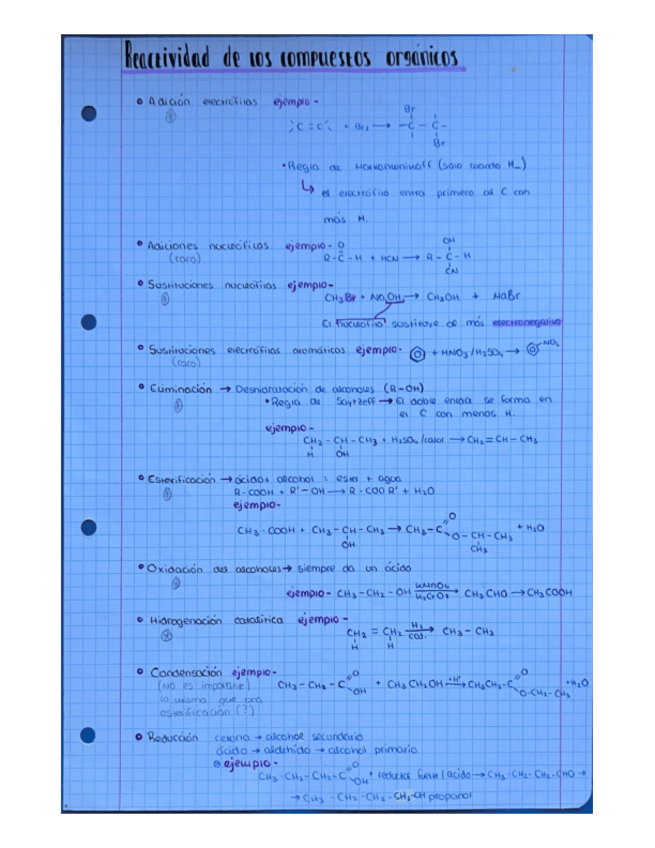 Reactividad de los compuestos orgánicos
Adición electrófilas ejemplo-
C = C + Br₂ → -C - C -
Br
Br
• Regla de Markownikoff (solo cuando H_)
↳ el electrófilo entra primero al C con
más H.
Adiciones nucleófilas ejemplo-
(raro)
R-C-H + HCN → R - C - H
O
OH
CN
Sustituciones nucleófilas ejemplo-
CH₃Br + NaOH → CH₃OH + NaBr
El nucleófilo sustituye al más electronegativo
Sustituciones electrófilas aromáticas ejemplo-
(raro)
+ HNO₃/H₂SO₄ → NO₂
Eliminación → Deshidratación de alcoholes (R-OH)
• Regla de Saytzeff → El doble enlace se forma en
el C con menos H.
ejemplo-
CH₂ - CH - CH₃ + H₂SO₄/calor → CH₂ = CH - CH₃
H OH
Esterificación → ácido + alcohol = ester + agua
R-COOH + R' - OH → R - COO R' + H₂O
ejemplo-
CH₃ - COOH + CH₃ - CH - CH₃ → CH₃-C O O - CH - CH₃ + H₂O
OH CH₃
Oxidación del alcoholes → siempre da un ácido
ejemplo- CH₃ - CH₂ - OH → CH₃ CHO → CH₃ COOH
Hidrogenación catalítica ejemplo-
CH₂ = CH₂ H₂ cat. → CH₃ - CH₃
H H
Condensación ejemplo-
(No es importante)
lo mismo que
esterificación (?)
CH₃ - CH₂ - C O OH + CH₃ CH₂OH +H⁺ → CH₃CH₂-C O O-CH₂-CH₃ +H₂O
Reducción cetona → alcohol secundario
ácido → aldehído → alcohol primario
ejemplo-
CH₃-CH₂-CH₂-C O OH + reductor fuerte/acido → CH₃-CH₂-CH₂-CHO →
→ CH₃ - CH₂ - CH₂ - CH₂-OH propanol